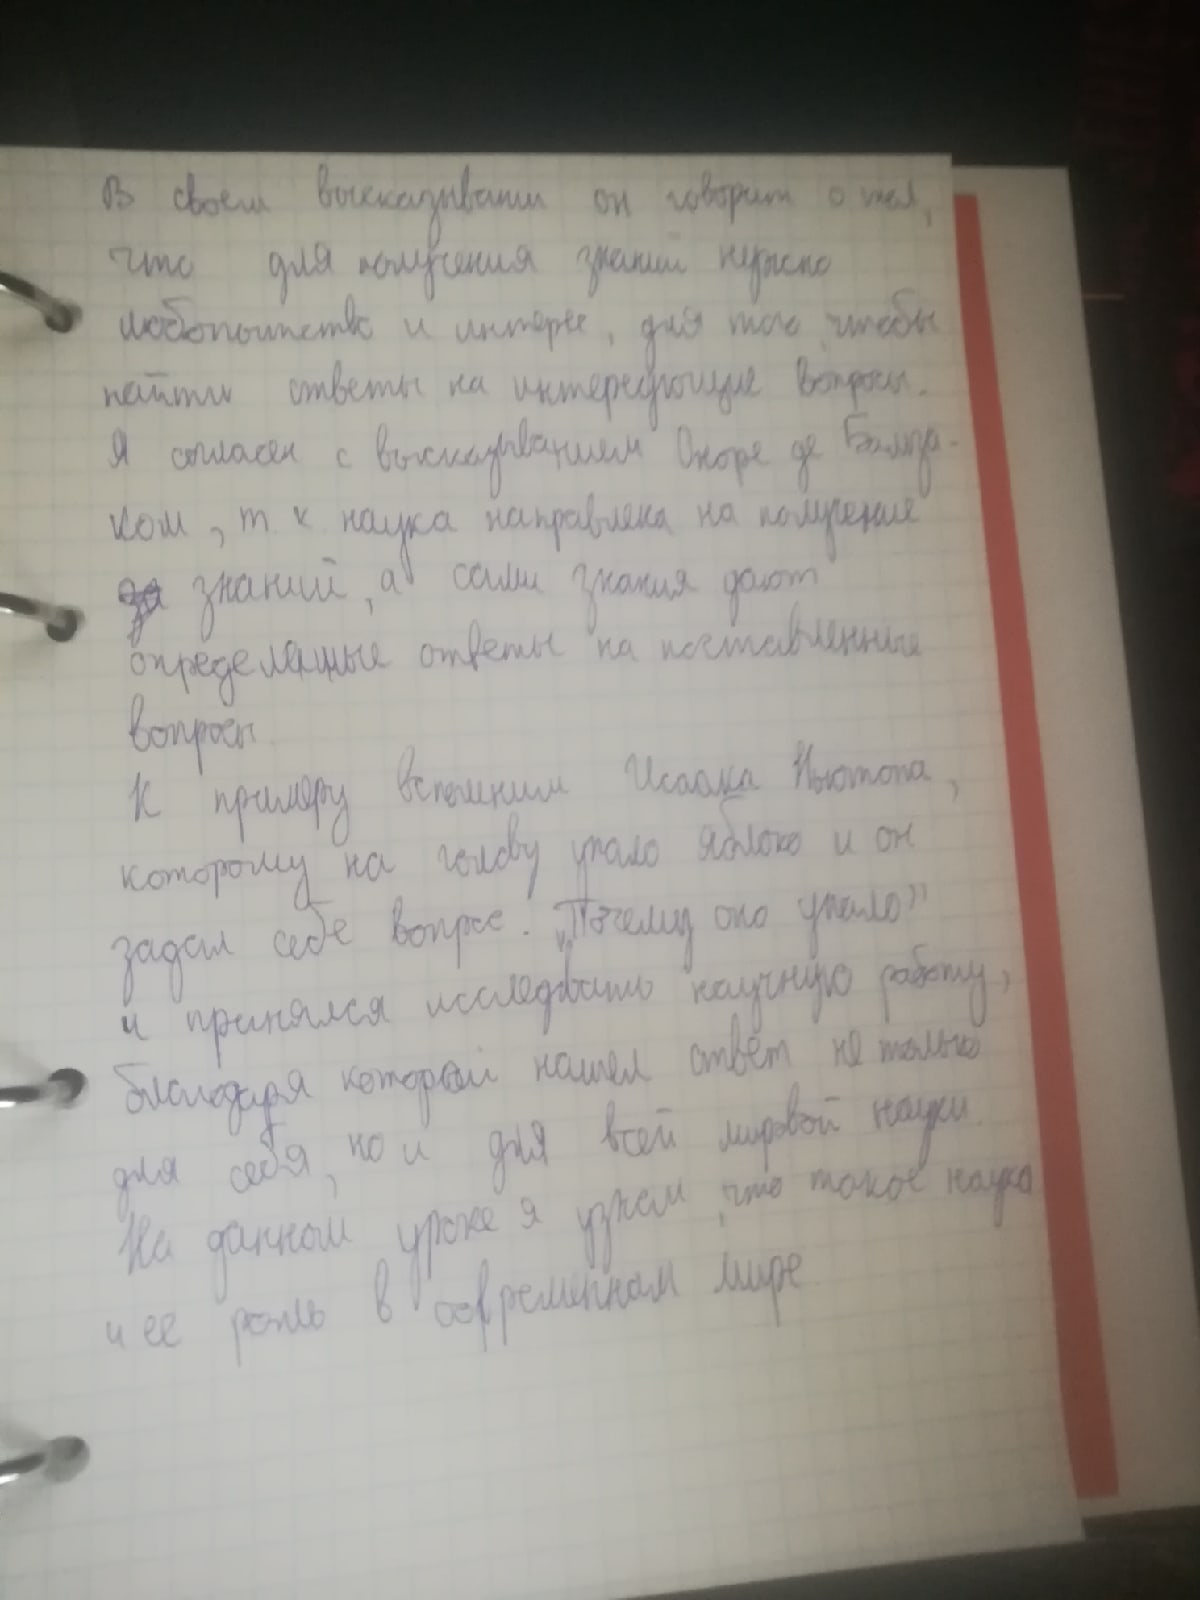 В своем высказывании он говорит о том,
что для получения знаний нужно
любопытство и интерес, для того, чтобы
найти ответы на интересующие вопросы.
Я согласен с высказыванием Оноре де Бальза-
ком, т. к наука направлена на получение
знаний, а сами знания дают
определенные ответы на поставленные
вопросы.
К примеру вспомним Исаака Ньютона,
которому на голову упало яблоко и он
задал себе вопрос. „Почему оно упало"
и принялся исследовать научную работу,
благодаря которой нашел ответ не только
для себя, но и для всей мировой науки.
На данном уроке я узнал, что такое наука
и ее роль в современном мире.